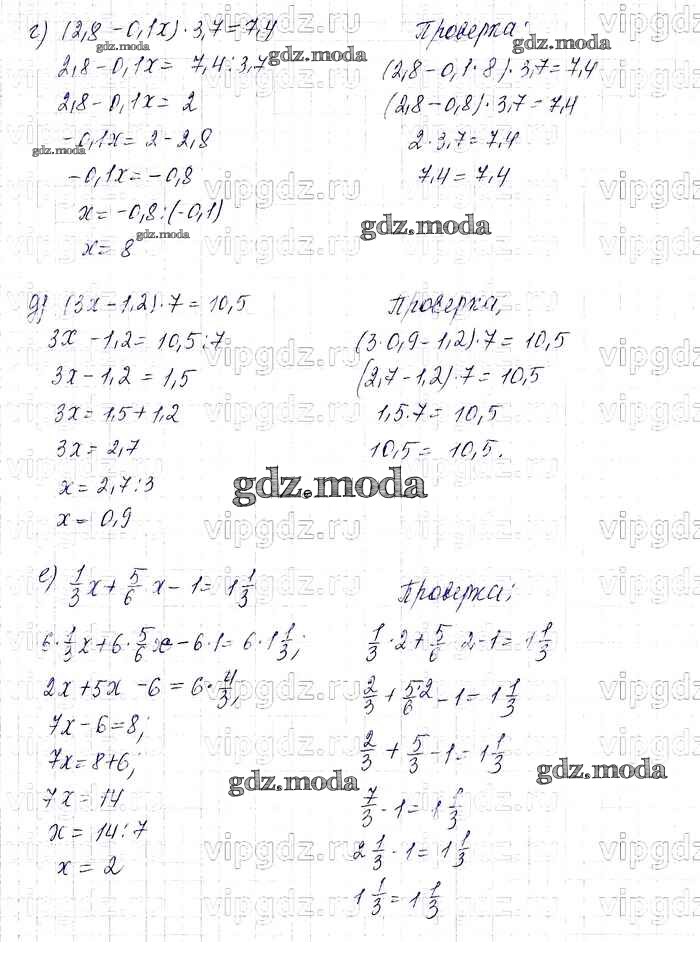 г) (2,8 - 0,1x) · 3,7 = 7,4
2,8 - 0,1x = 7,4 : 3,7
2,8 - 0,1x = 2
-0,1x = 2 - 2,8
-0,1x = -0,8
x = -0,8 : (-0,1)
x = 8
Проверка:
(2,8 - 0,1 · 8) · 3,7 = 7,4
(2,8 - 0,8) · 3,7 = 7,4
2 · 3,7 = 7,4
7,4 = 7,4
д) (3x - 1,2) · 7 = 10,5
3x - 1,2 = 10,5 : 7
3x - 1,2 = 1,5
3x = 1,5 + 1,2
3x = 2,7
x = 2,7 : 3
x = 0,9
Проверка,
(3 · 0,9 - 1,2) · 7 = 10,5
(2,7 - 1,2) · 7 = 10,5
1,5 · 7 = 10,5
10,5 = 10,5.
е) 1/3 x + 5/6 x - 1 = 1 1/3
6 · 1/3 x + 6 · 5/6 x - 6 · 1 = 6 · 1 1/3;
2x + 5x - 6 = 6 · 4/3;
7x - 6 = 8;
7x = 8 + 6;
7x = 14
x = 14 : 7
x = 2
Проверка;
1/3 · 2 + 5/6 · 2 - 1 = 1 1/3
2/3 + 5·2/6 - 1 = 1 1/3
2/3 + 5/3 - 1 = 1 1/3
7/3 - 1 = 1 1/3
2 1/3 - 1 = 1 1/3
1 1/3 = 1 1/3
gdz.moda
vipgdz.ru